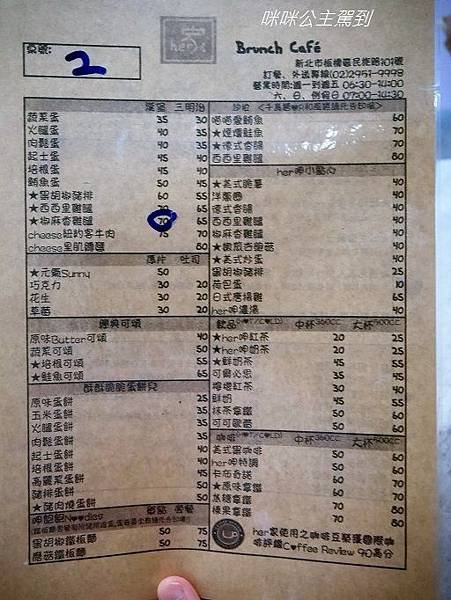 咪咪公主駕到
桌號:
2
her
Brunch Café
新北市板橋區民族路101號
訂餐、外送專線(02)2951-9998
營業時間:週一到週五 06:30-14:00
六、日、例假日 07:00-14:30
漢堡 三明治
蔬菜蛋 35 30
火腿蛋 40 35
肉鬆蛋 40 35
起士蛋 45 40
培根蛋 45 40
鮪魚蛋 50 45
★黑胡椒豬排 60 55
★西西里雞腿 70 65
★椒麻香雞腿 70 65
cheese紐約客牛肉 75 70
cheese里肌豬醬 80
厚片 吐司
★元氣Sunny 50
巧克力 30 20
花生 30 20
草莓 30 20
經典可頌
原味Butter可頌 40
蔬菜可頌 50
★培根可頌 55
★鮭魚可頌 65
酥酥脆脆蛋餅兒
原味蛋餅 25
玉米蛋餅 35
火腿蛋餅 35
肉鬆蛋餅 35
起士蛋餅 40
培根蛋餅 40
高麗菜蛋餅 45
豬排蛋餅 50
★豬肉燒蛋餅 50
呷飽飽Noodles 單點 套餐
黑胡椒鐵板麵 50 75
蘑菇鐵板麵 50 75
喵喵愛鮪魚 60
★煙燻鮭魚 70
★德式香腸 70
西西里雞腿 80
her呷小點心
★美式脆薯 40
洋蔥圈 40
德式香腸 40
西西里雞腿 40
椒麻香雞腿 40
40
★美式炒蛋 40
黑胡椒豬排 25
荷包蛋 10
日式唐揚雞 65
her呷濃湯 40
飲品(HOT/COLD) 中杯360cc 大杯500cc
★her呷紅茶 20 25
★her呷奶茶 20 25
★鮮奶茶 45 55
可爾必思 35 45
檸檬紅茶 30 40
鮮奶 45 55
抹茶拿鐵 50 60
可可歐蕾 50 60
咖啡(HOT/COLD) 中杯360cc 大杯500cc
美式黑咖啡 50 60
her呷特調 50 60
卡布奇諾 60 70
★原味拿鐵 60 70
焦糖拿鐵 70 80
榛果拿鐵 70 80
her家使用之咖啡豆榮獲國際咖
啡評鑑Coffee Review 90高分